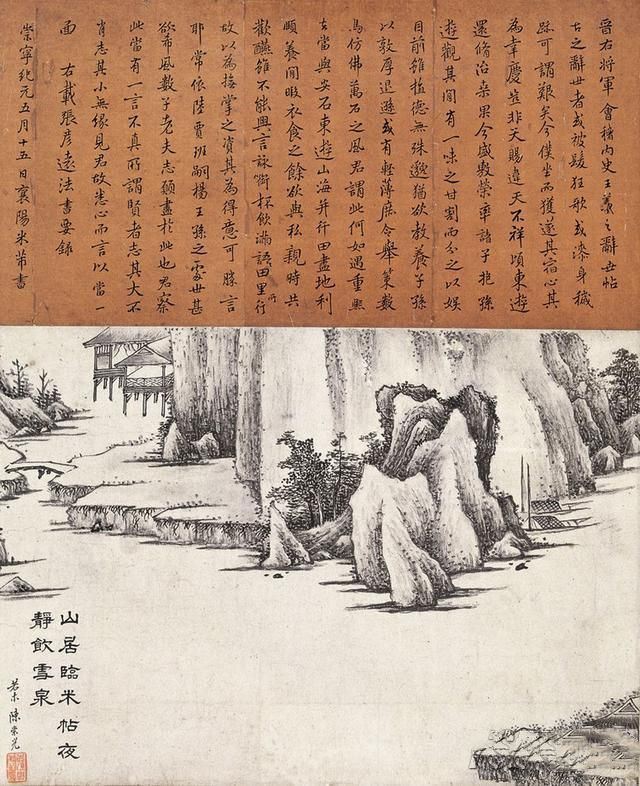 晉右將軍會稽內史王羲之辭世帖
古之辭世者或被髮狂歌或漆身穢
跡可謂艱矣今僕坐而獲遂其宿心其
為幸慶豈非天賜違天不祥頃東遊
還脩治桑果今盛敷榮率諸子抱孫
遊觀其間有一味之甘割而分之以娛
目前雖植德無殊邈猶欲教養子孫
以敦厚退遜或有輕薄庶令舉策數
馬仿佛萬石之風君謂此何如遇重熙
去當與安石東遊山海并行田盡地利
頤養閒暇衣食之餘欲與私親時共
歡讌雖不能興言詠銜杯飲滿語田里所行
故以為撫掌之資其為得意可勝言
耶常依陸賈班嗣楊王孫之處世甚
欲希風數子老夫志願盡於此也君察
此當有一言不真所謂賢者志其大不
肖志其小無緣見君故悉心而言以當一
面 右載張彥遠法書要錄
崇寧紀元五月十五日襄陽米芾書
山居臨米帖夜
靜飲雪泉
若木 陳光